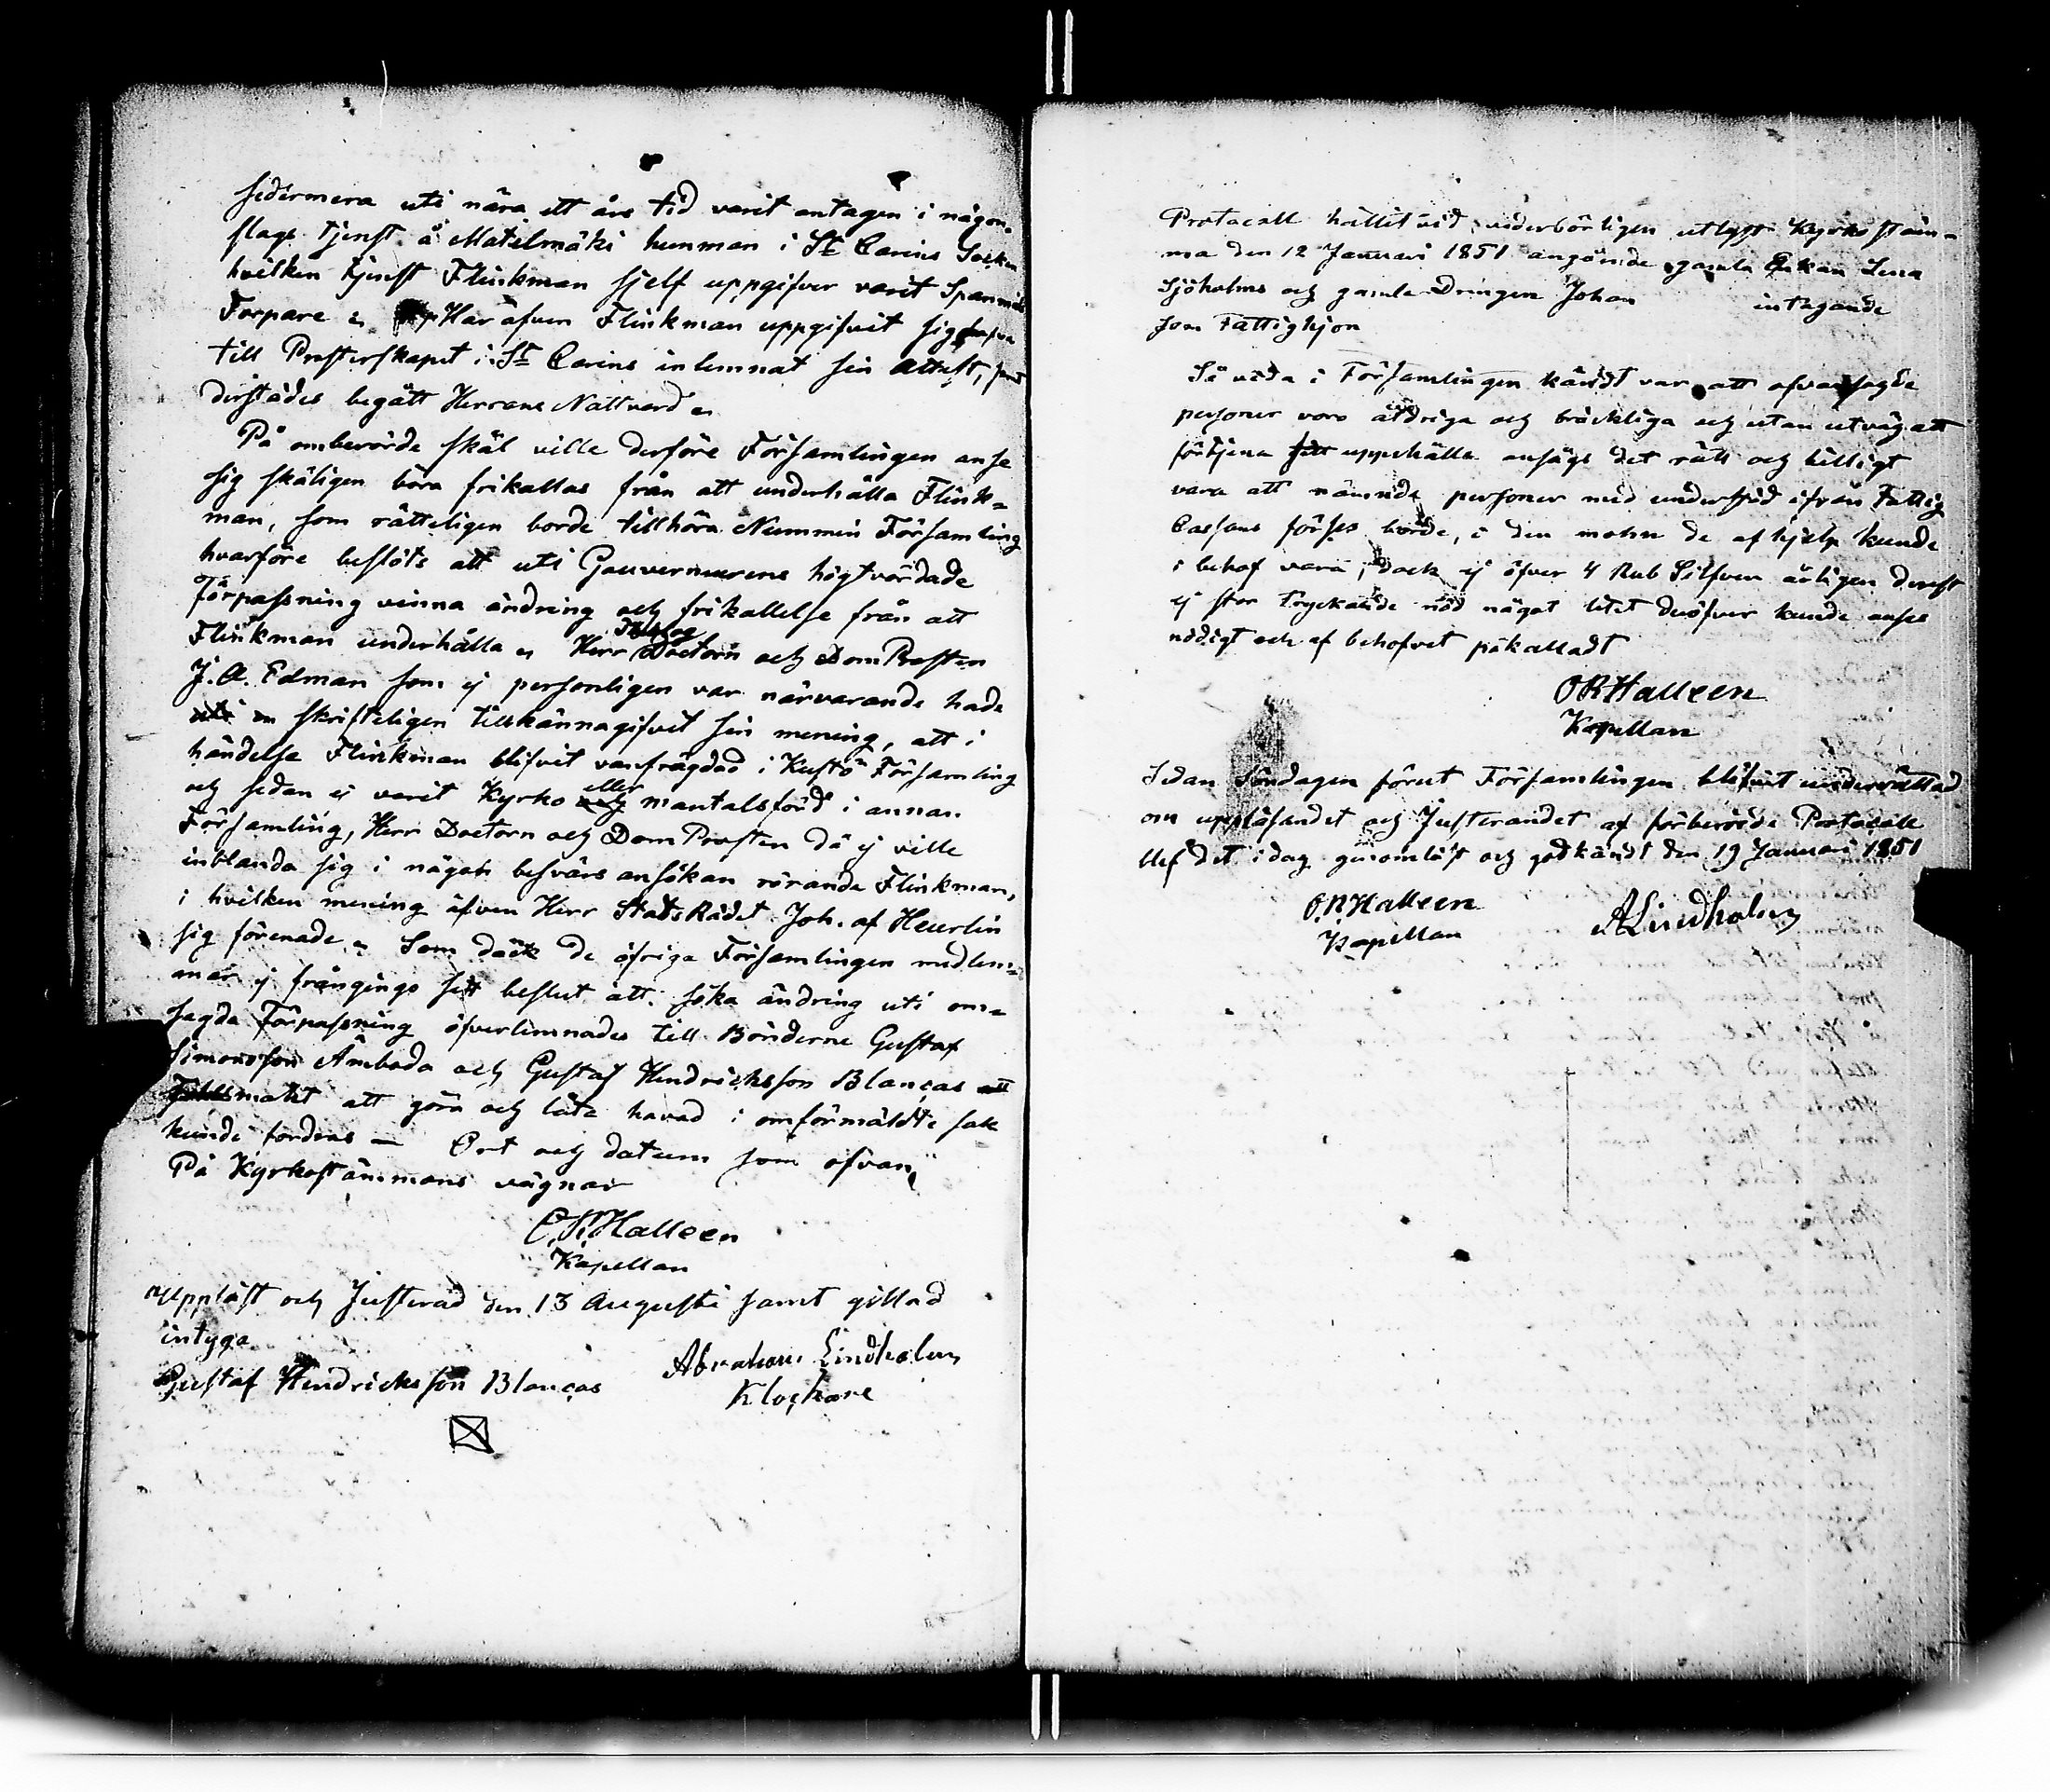 sedermera uti nära ett års tid varit antagen i någon
slags tjenst å Matilmäki hemman i St Carins Socken
hvilken tjenst Flinkman sjelf uppgifver varit Spanmåls
Torpare Har äfven Flinkman uppgifvit sig hafva
till Presterskapet i St Carins inlemnat sin attest, samt
derstädes begått Herrans Nattvard
På omberörde skäl ville derföre Församlingen anse
sig skäligen böra frikallas från att underhålla Flink=
man, som rätteligen borde tillhöra Nummin Församling
hvarföre beslöts att uti Gouverneurens högtvördade
Förpassning vinna ändring och frikallelse från att
Flinkman underhålla Herr Theolog Doctorn och DomProsten
J. A. Edman som ej personligen var närvarande hade
skrifteligen tillkännagifvit sin mening, att i
händelse Flinkman blifvit vanfrägdad i Kustö Församling
och sedan ej varit Kyrko eller mantalsförd i annan
Församling, Herr Doctorn och DomProsten då ej ville
inblanda sig i någon besvärs ansökan rörande Flinkman,
i hvilken mening äfven Herr StatsRådet Joh. af Heurlin
sig förenade Som dock de öfriga Församlingen medlem=
mar ej frångingo sitt beslut att söka ändring uti om=
sagda Förpassning öfverlemnades till Bönderne Gustaf
Simonsson Ämboda och Gustaf Hendricksson Blancas
makt att göra och låta havad i omförmäldte sak
kunde fordras — Ort och datum som ofvan
På Kyrkostämmans vägnar
O. R. Halleen
Kapellan
Uppläst och Justerad den 13 Augusti samt gillad
intyga
Gustaf Hendricksson Blancas
Abraham Lindholm
Klockare
Protacoll hållit vid vederbörligen utlyst Kyrkostäm=
ma den 12 Januari 1851 angående gamla Enkan Lena
Sjöholms och gamle Drängen Johan intagande
som Fattighjon
Så vida i Församlingen kändt var att ofvansagde
personer voro åldriga och bräckliga och utan utväg att
förtjena sitt uppehälle ansågs det rätt och billigt
vara att nämnde personer med understöd ifrån Fattig
Cassans förses borde, i den mohn de af hjelp kunde
i behof vara, dock ej öfver 4 Rub Silfver årligen derest
ej stor tryckande nöd något litet deröfver kunde anses
nödigt och af behofvet påkalladt
O R Halleen
Kapellan
Sedan Söndagen förut Församlingen blifvit underrättad
om uppläsandet och Justerandet af förberörde Protacoll
blef det i dag genomläst och godkändt den 19 Januari 1851
O. R Halleen
Kapellan
A Lindholm